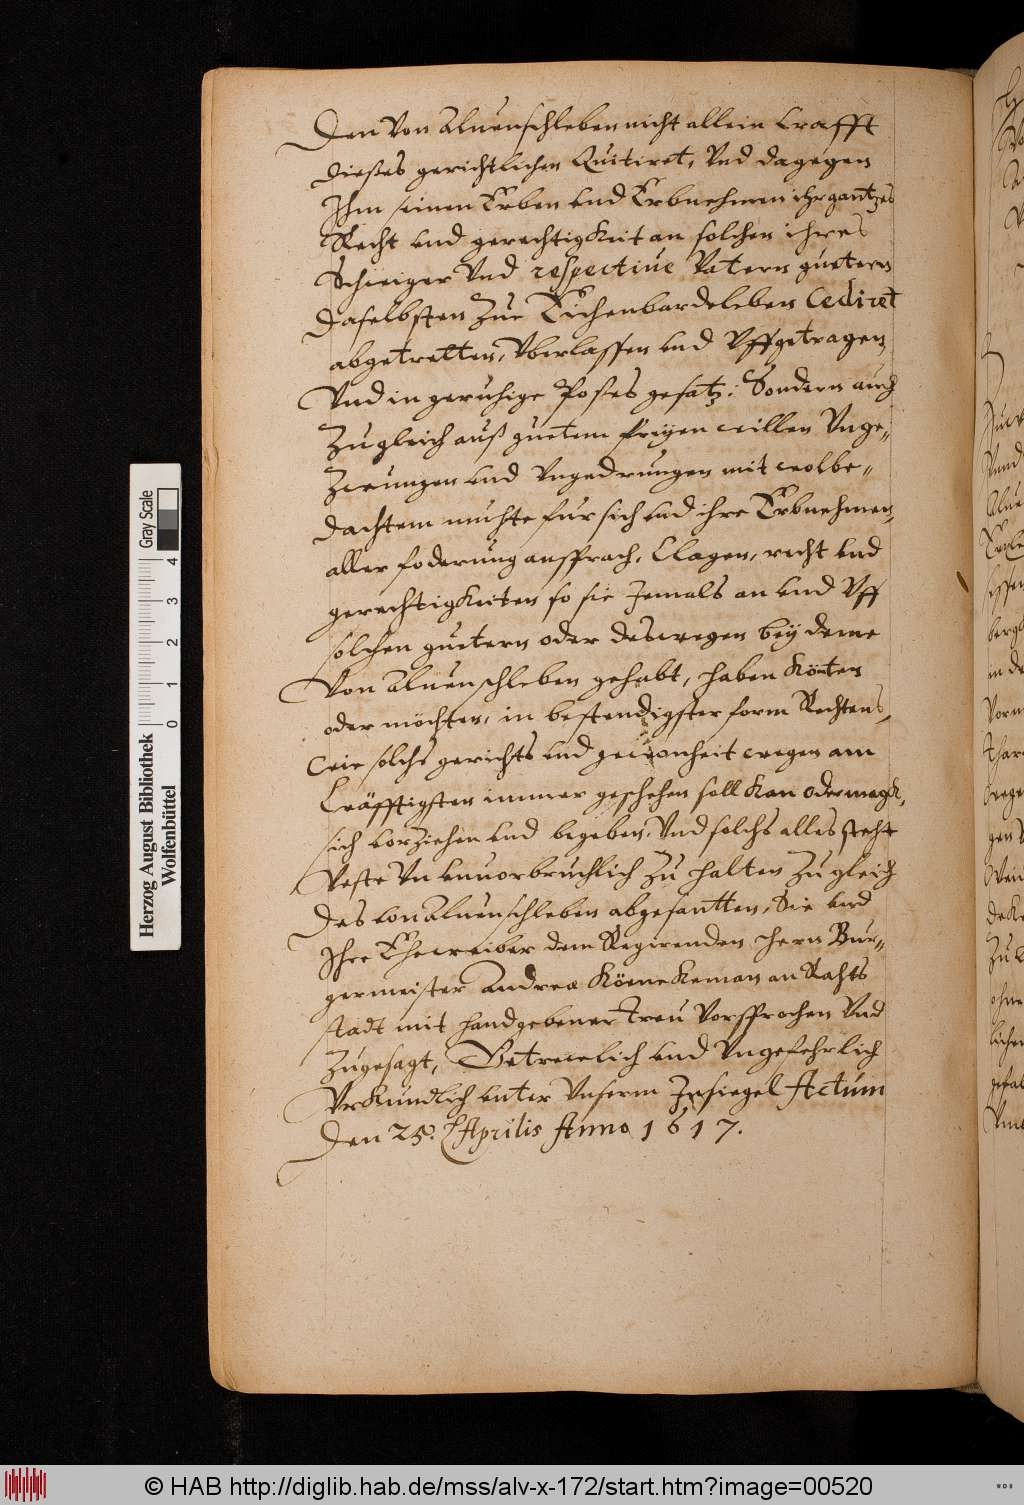 Den Von Aluenschleben nicht allein Crafft
dießes gerichtlichen Quitiret, Vnd dagegen
Ihm seinen Erben vnd Erbnehmen ihr gantzes
Recht vnd gerechtigkeit an solchen ihres
Schwiger Vnd respective Vatern guetern
daselbsten Zue Eichenbardeleben Cediret
abgetretten, Vberlassen vnd Vffgetragen
Vnd in geruhige Poßes gesatz: Sondern auch
Zugleich auß guetem freyen willen Vnge„
Zwungen vnd Vngedrungen mit wolbe„
dachtem muhte fur sich vnd ihre Erbnehmen,
aller foderung ansprach, Clagen, recht vnd
gerechtigkeiten so sie Jemals an vnd Vff
solchen guetern oder deswegen bey deme
Von Aluenschleben gehabt, haben könten
oder möchten, in bestendigster form Rechtens,
Wie solchs gerichts vnd gewonheit wegen am
Cräfftigsten immer geschehen soll kan oder magk,
sich vorziehen vnd begeben, Vnd solchs alles steht
Veste Vn vnuorbruchlich Zu halten Zugleich
des von Aluenschleben abgesantten, Sie vnd
Ihre Eheweiber dem Regirenden Hern Bur„
germeister Andrea Köenekeman an Rahts
stadt mit handgebener treu Vorsprochen Vnd
Zugesagt, Getrewlich vnd Vngefehrlich
Vrkundlich vnter Vnserm Insiegel Actum
Den 25. Aprilis Anno 1617.
Herzog August Bibliothek
Wolfenbüttel
0 1 2 3 4
Gray Scale
© HAB http://diglib.hab.de/mss/alv-x-172/start.htm?image=00520